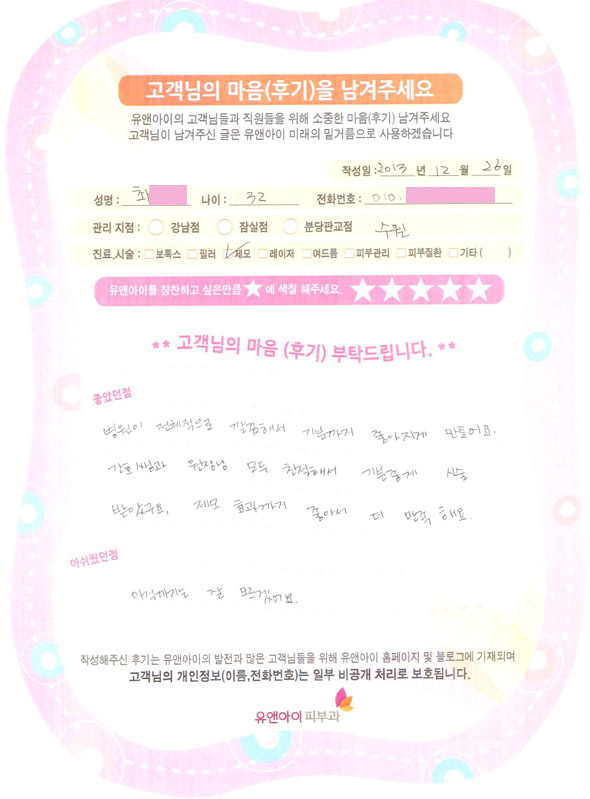 고객님의 마음(후기)을 남겨주세요
유앤아이의 고객님들과 직원들을 위해 소중한 마음(후기) 남겨주세요
고객님이 남겨주신 글은 유앤아이 미래의 밑거름으로 사용하겠습니다
작성일 : 2013 년 12 월 26 일
성명 : 최 나이 : 32 전화번호 : 010.
관리 지점 : 강남점 잠실점 분당판교점 수원
진료,시술 : 보톡스 필러 제모 레이저 여드름 피부관리 피부질환 기타 ( )
유앤아이를 칭찬하고 싶은만큼 ★ 에 색칠 해주세요. ★★★★★
** 고객님의 마음 (후기) 부탁드립니다. **
좋았던점
병원이 전체적으로 깔끔해서 기분까지 좋아지게 만들어요.
간호사님과 원장님 모두 친절해서 기분좋게 시술
받았구요, 제모 효과까지 좋아서 더 만족 해요.
아쉬웠던점
아직까지는 잘 모르겠어요.
작성해주신 후기는 유앤아이의 발전과 많은 고객님들을 위해 유앤아이 홈페이지 및 블로그에 기재되며
고객님의 개인정보(이름,전화번호)는 일부 비공개 처리로 보호됩니다.
유앤아이 피부과